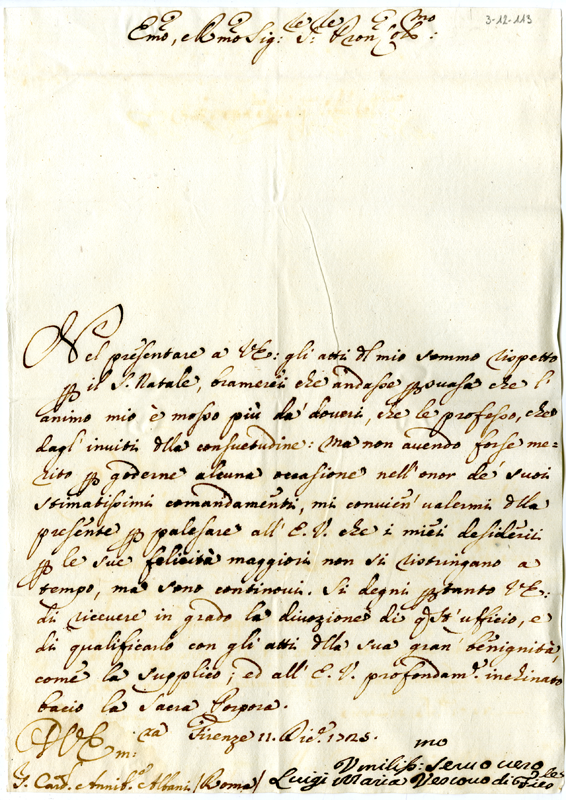 3-12-113
Emo, e Rmo Sig:re Sr. Pron: Colmo:
Nel presentare a VE: gli atti dl mio sommo rispetto
p il S. Natale, bramerei che andasse psuasa che l'
animo mio è mosso più da' doveri, che le professo, che
dagl'inviti dlla consuetudine: Ma non avendo forse me-
rito p goderne alcuna occasione nell'onor de' suoi
stimatissimi comandamenti, mi convien' valermi dlla
presente p palesare all'E.V. che i miei desiderii
p le sue felicità maggiori non si ristringano a
tempo, ma sono continovi. Si degni ptanto VE:
di ricevere in grado la divozione di qst'uffizio, e
di qualificarlo con gli atti dlla sua gran' benignità,
come la supplico; ed all'E.V. profondamte. inchinato
bacio la Sacra Porpora.
Di VE: ma Firenze 11. Dice. 1725.
Umiliss: mo servo vero
S. Card. Annib.e Albani /Roma/ Luigi Maria Vescovo di Fiesole